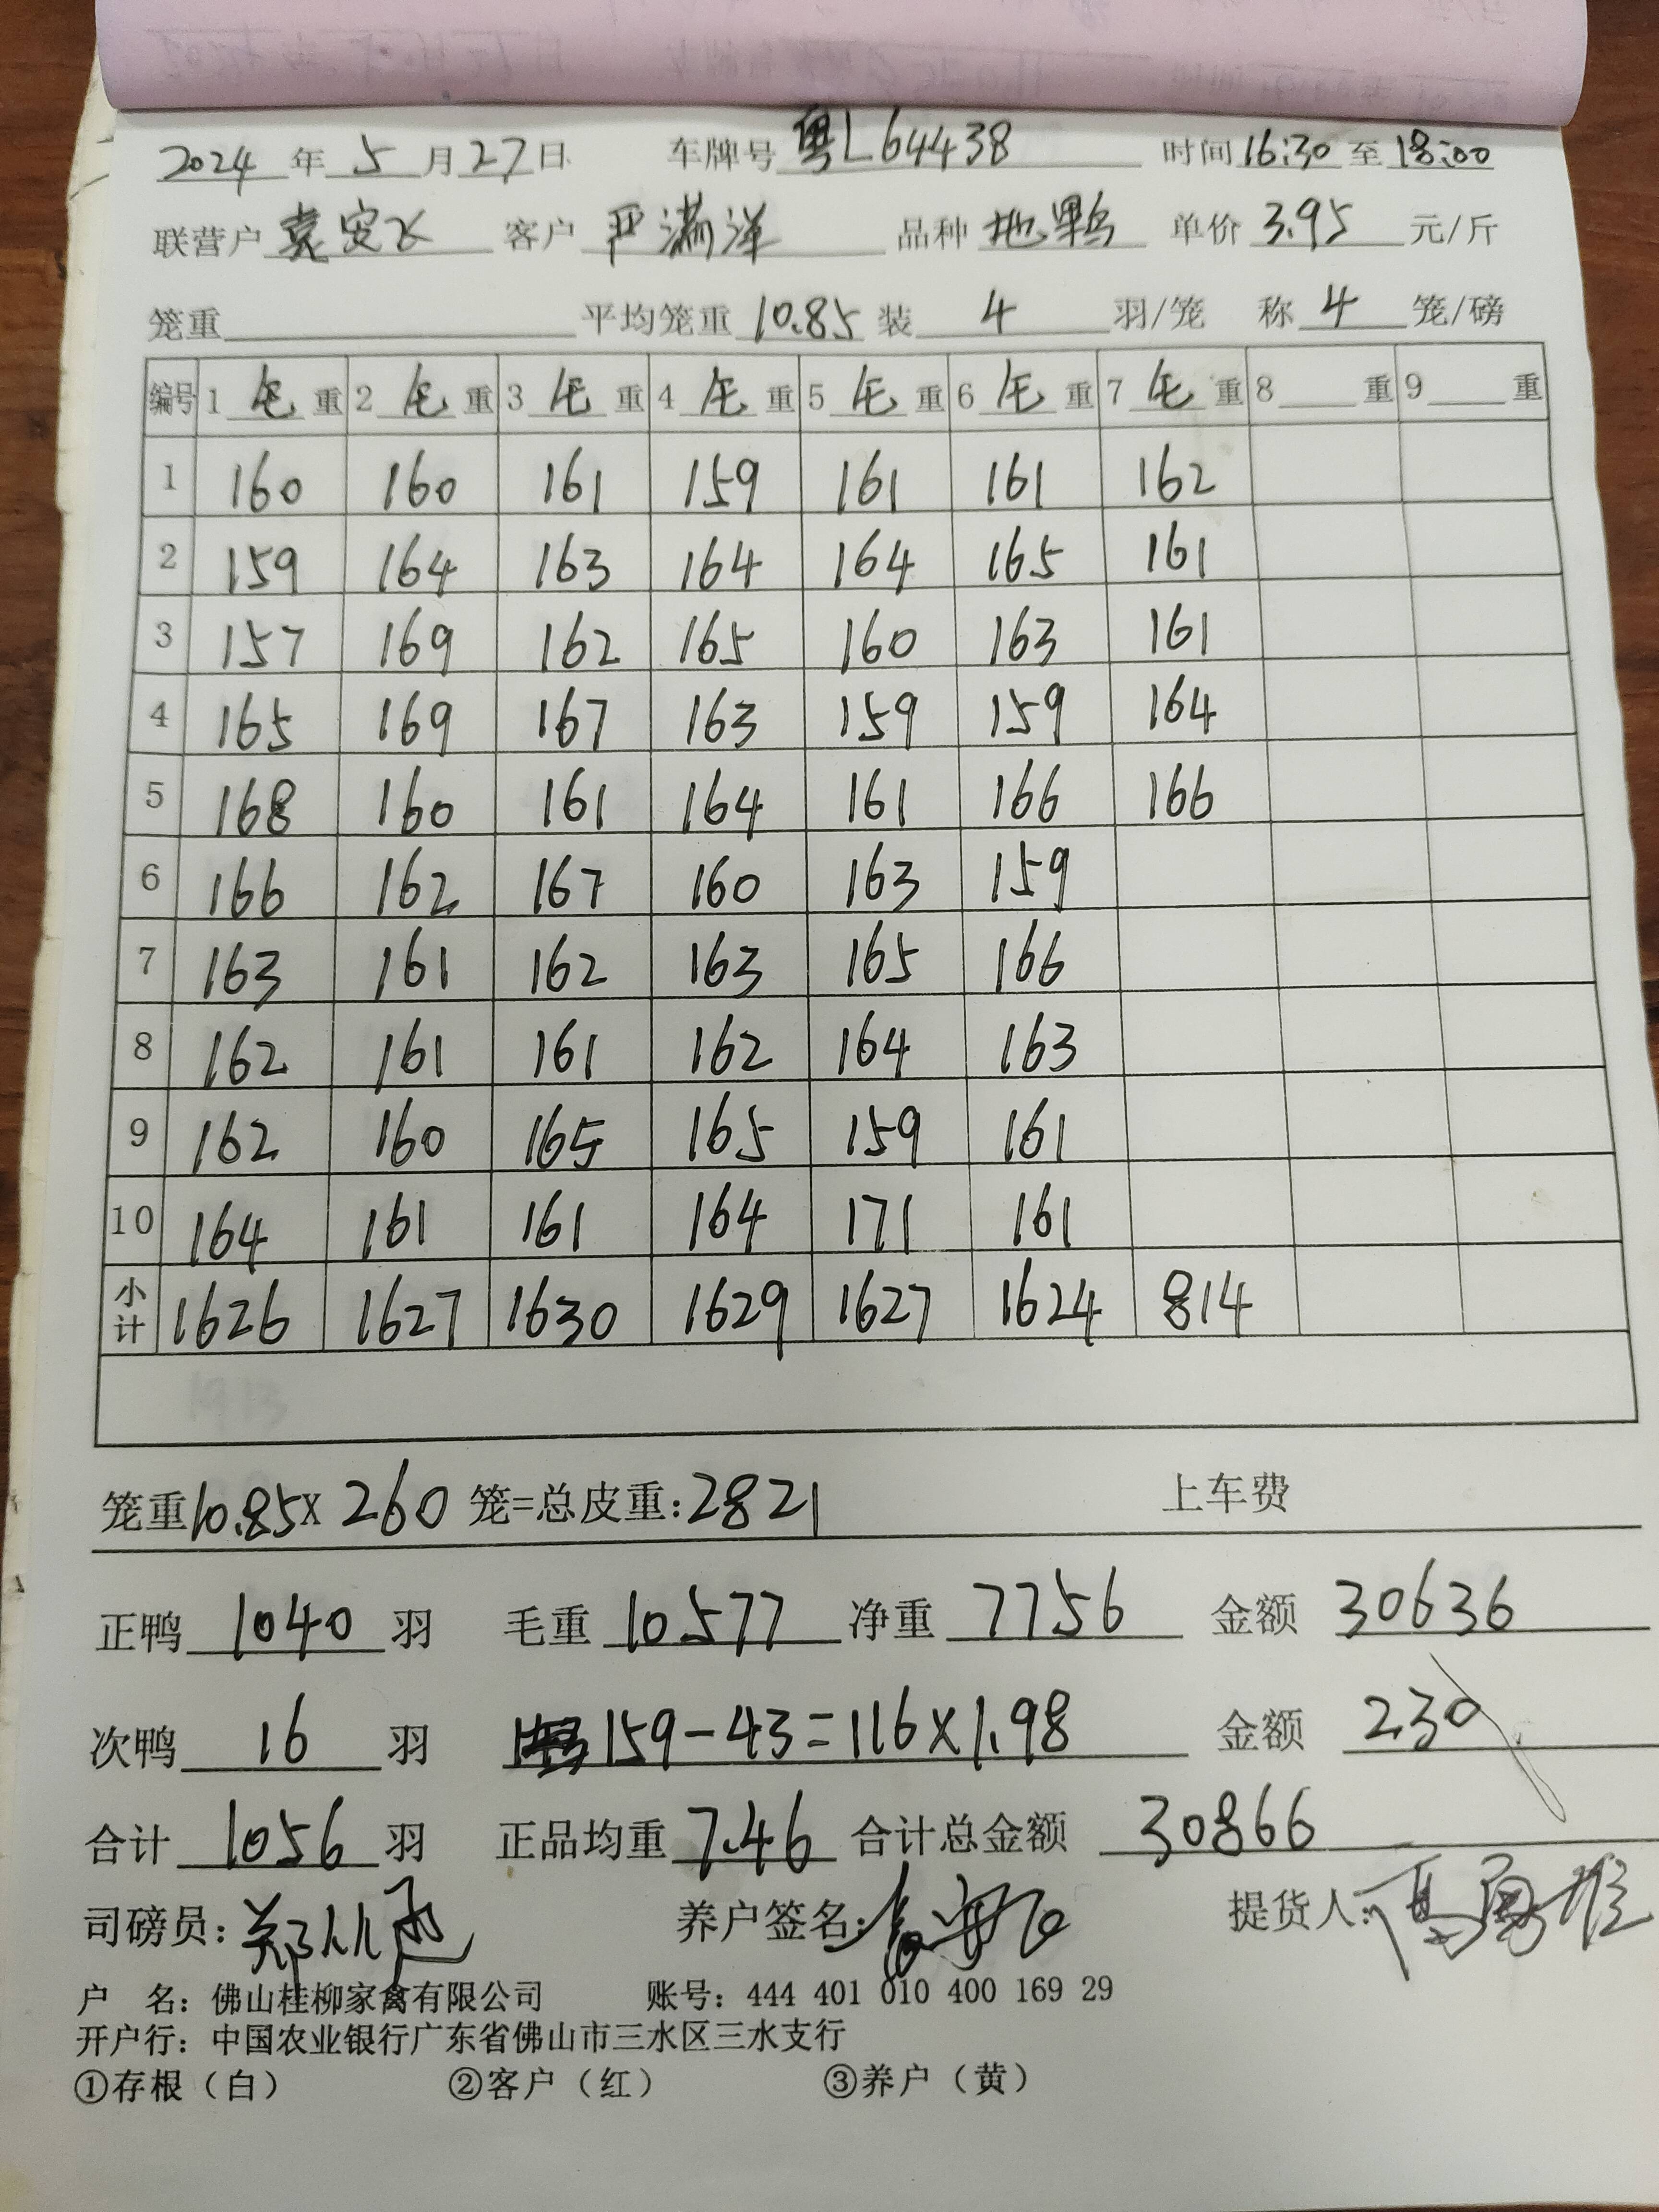 2024 年 5 月 27 日 车牌号 粤L64438 时间 16:30 至 18:00
联营户 袁安飞 客户 严满洋 品种 地鸭 单价 3.95 元/斤
笼重 平均笼重 10.85 装 4 羽/笼 称 4 笼/磅
编号 1 毛 重 2 毛 重 3 毛 重 4 毛 重 5 毛 重 6 毛 重 7 毛 重 8 重 9 重
1 160 160 161 159 161 161 162
2 159 164 163 164 164 165 161
3 157 169 162 165 160 163 161
4 165 169 167 163 159 159 164
5 168 160 161 164 161 166 166
6 166 162 167 160 163 159
7 163 161 162 163 165 166
8 162 161 161 162 164 163
9 162 160 165 165 159 161
10 164 161 161 164 171 161
小计 1626 1627 1630 1629 1627 1624 814
笼重 10.85 X 260 笼=总皮重: 2821 上车费
正鸭 1040 羽 毛重 10577 净重 7756 金额 30636
次鸭 16 羽 159-43=116×1.98 金额 230
合计 1056 羽 正品均重 7.46 合计总金额 30866
司磅员: 养户签名: 提货人:
户 名: 佛山桂柳家禽有限公司 账号: 444 401 010 400 169 29
开户行: 中国农业银行广东省佛山市三水区三水支行
①存根（白） ②客户（红） ③养户（黄）